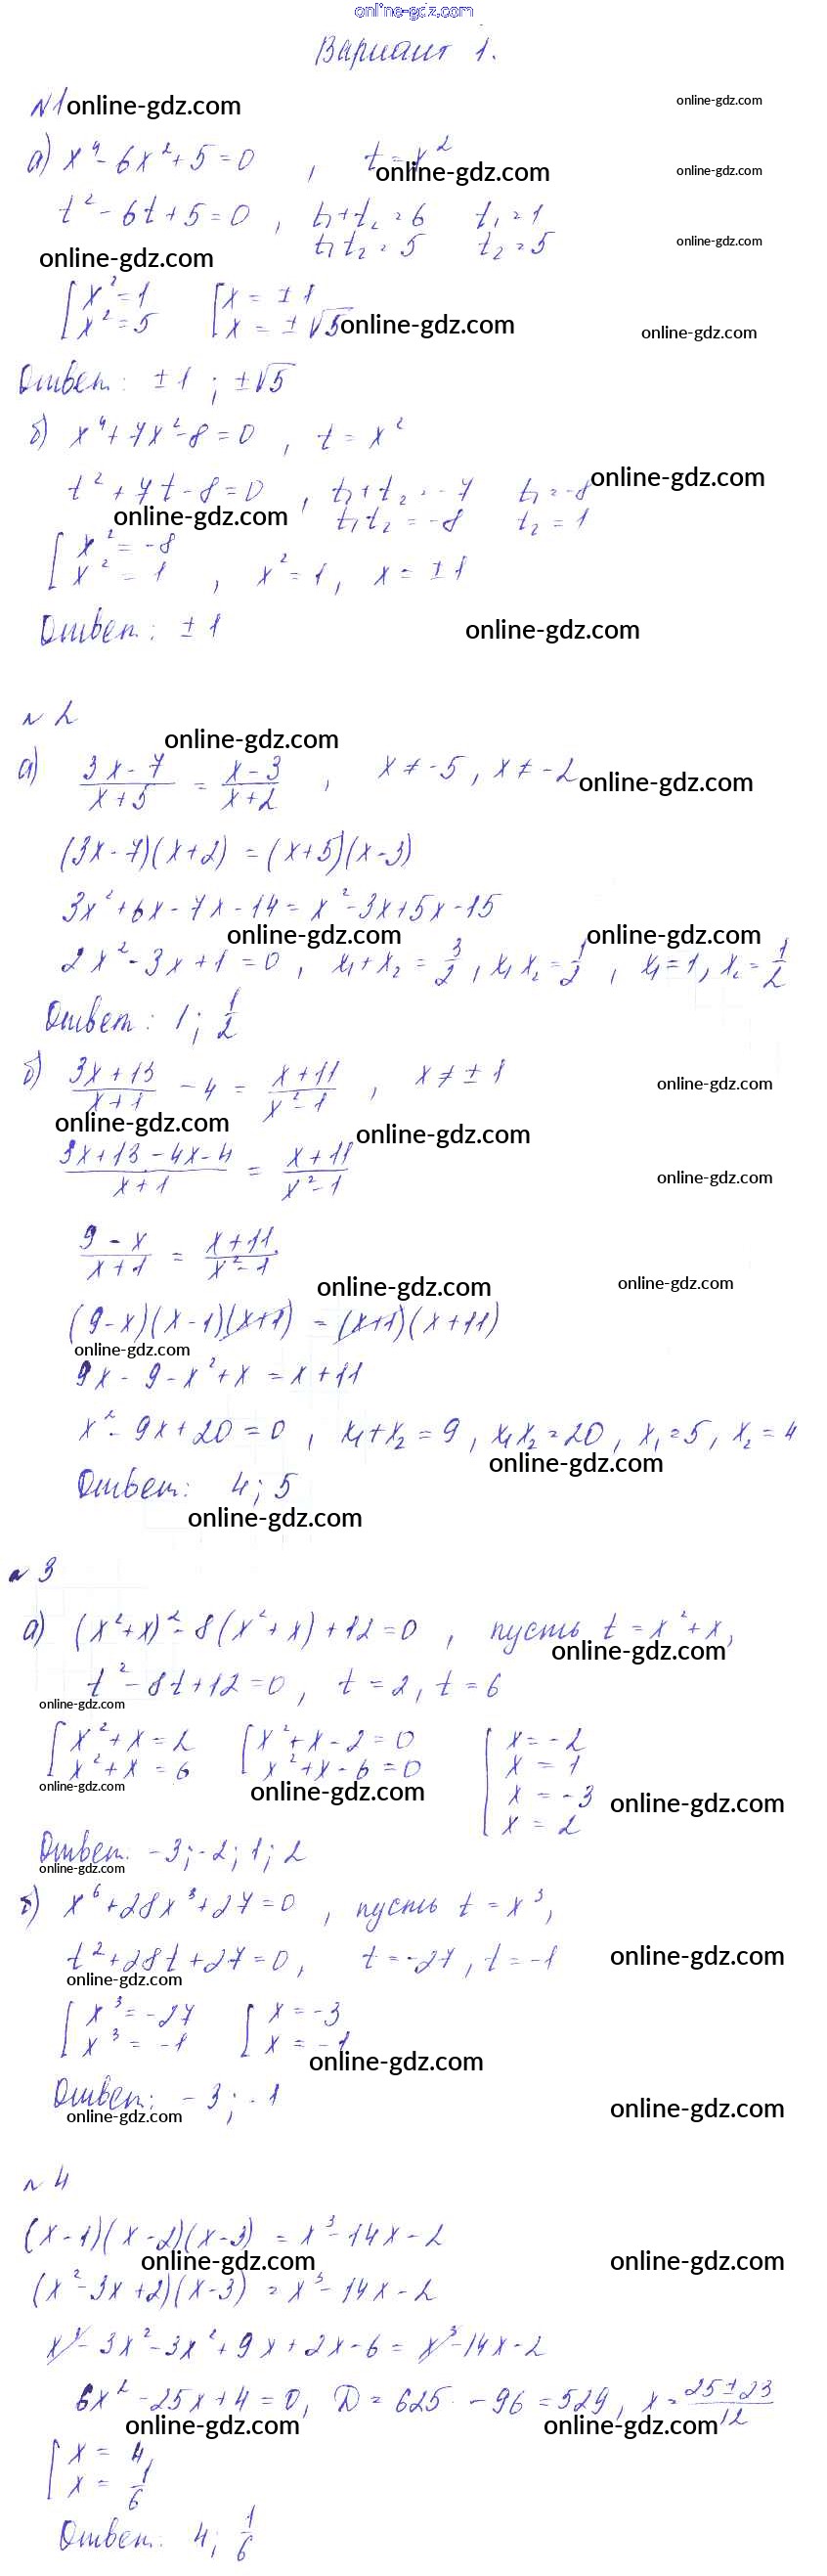 online-gdz.com
Вариант 1.
№1 online-gdz.com online-gdz.com
а) x⁴ - 6x² + 5 = 0 , t = x²
online-gdz.com online-gdz.com
t² - 6t + 5 = 0 , t₁ + t₂ = 6 t₁ = 1
t₁ t₂ = 5 t₂ = 5 online-gdz.com
online-gdz.com
[ x² = 1 [ x = ± 1
x² = 5 x = ± √5 online-gdz.com online-gdz.com
Ответ: ± 1 ; ±√5
б) x⁴ + 7x² - 8 = 0 , t = x²
t² + 7t - 8 = 0 , t₁ + t₂ = -7 t₁ = -8 online-gdz.com
online-gdz.com t₁ t₂ = -8 t₂ = 1
[ x² = -8
x² = 1 , x² = 1 , x = ± 1
Ответ: ± 1 online-gdz.com
№ 2
online-gdz.com
а) (3x - 7)/(x + 5) = (x - 3)/(x + 2) , x ≠ -5 , x ≠ -2 online-gdz.com
(3x - 7)(x + 2) = (x + 5)(x - 3)
3x² + 6x - 7x - 14 = x² - 3x + 5x - 15
online-gdz.com online-gdz.com
2x² - 3x + 1 = 0 , x₁ + x₂ = 3/2 , x₁ x₂ = 1/2 , x₁ = 1 , x₂ = 1/2
Ответ: 1 ; 1/2
б) (3x + 13)/(x + 1) - 4 = (x + 11)/(x² - 1) , x ≠ ± 1 online-gdz.com
online-gdz.com online-gdz.com
(3x + 13 - 4x - 4)/(x + 1) = (x + 11)/(x² - 1) online-gdz.com
(9 - x)/(x + 1) = (x + 11)/(x² - 1)
online-gdz.com online-gdz.com
(9 - x)(x - 1)(x + 1) = (x + 1)(x + 11)
online-gdz.com
9x - 9 - x² + x = x + 11
x² - 9x + 20 = 0 , x₁ + x₂ = 9 , x₁ x₂ = 20 , x₁ = 5 , x₂ = 4
online-gdz.com
Ответ: 4 ; 5
online-gdz.com
№ 3
а) (x² + x)² - 8(x² + x) + 12 = 0 , пусть t = x² + x ,
online-gdz.com
t² - 8t + 12 = 0 , t = 2 , t = 6
online-gdz.com
[ x² + x = 2 [ x² + x - 2 = 0 [ x = -2
x² + x = 6 x² + x - 6 = 0 x = 1
online-gdz.com online-gdz.com x = -3 online-gdz.com
x = 2
Ответ: -3 ; -2 ; 1 ; 2
online-gdz.com
б) x⁶ + 28x³ + 27 = 0 , пусть t = x³ ,
t² + 28t + 27 = 0 , t = -27 , t = -1 online-gdz.com
online-gdz.com
[ x³ = -27 [ x = -3
x³ = -1 x = -1
online-gdz.com
Ответ: -3 ; -1
online-gdz.com online-gdz.com
№ 4
(x - 1)(x - 2)(x - 3) = x³ - 14x - 2
online-gdz.com online-gdz.com
(x² - 3x + 2)(x - 3) = x³ - 14x - 2
x³ - 3x² - 3x² + 9x + 2x - 6 = x³ - 14x - 2
6x² - 25x + 4 = 0 , D = 625 - 96 = 529 , x = (25 ± 23)/12
online-gdz.com online-gdz.com
[ x = 4
x = 1/6
Ответ: 4 ; 1/6